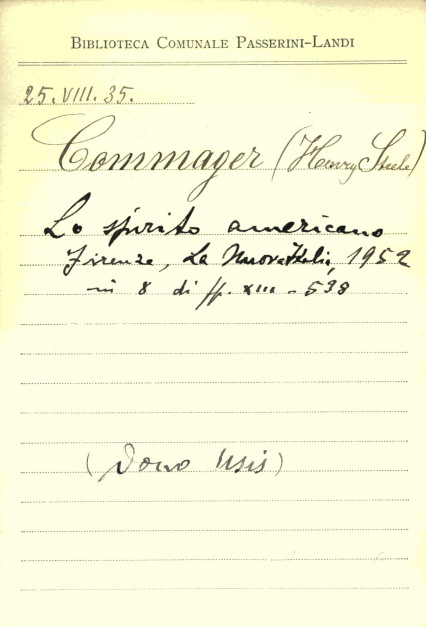 BIBLIOTECA COMUNALE PASSERINI-LANDI
25. VIII. 35.
Commager (Henry Steele)
Lo spirito americano
Firenze, La Nuova Italia, 1952
in 8 di pp. XIII - 538
(Dono Usis)